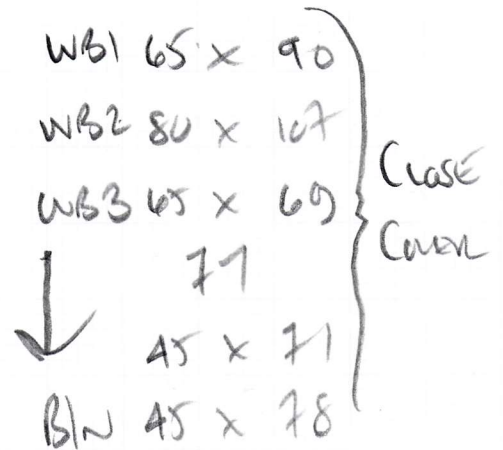 WB1 65 x 90
WB2 80 x 107
WB3 65 x 69
71
45 x 71
BIN 45 x 78
Close
Cover